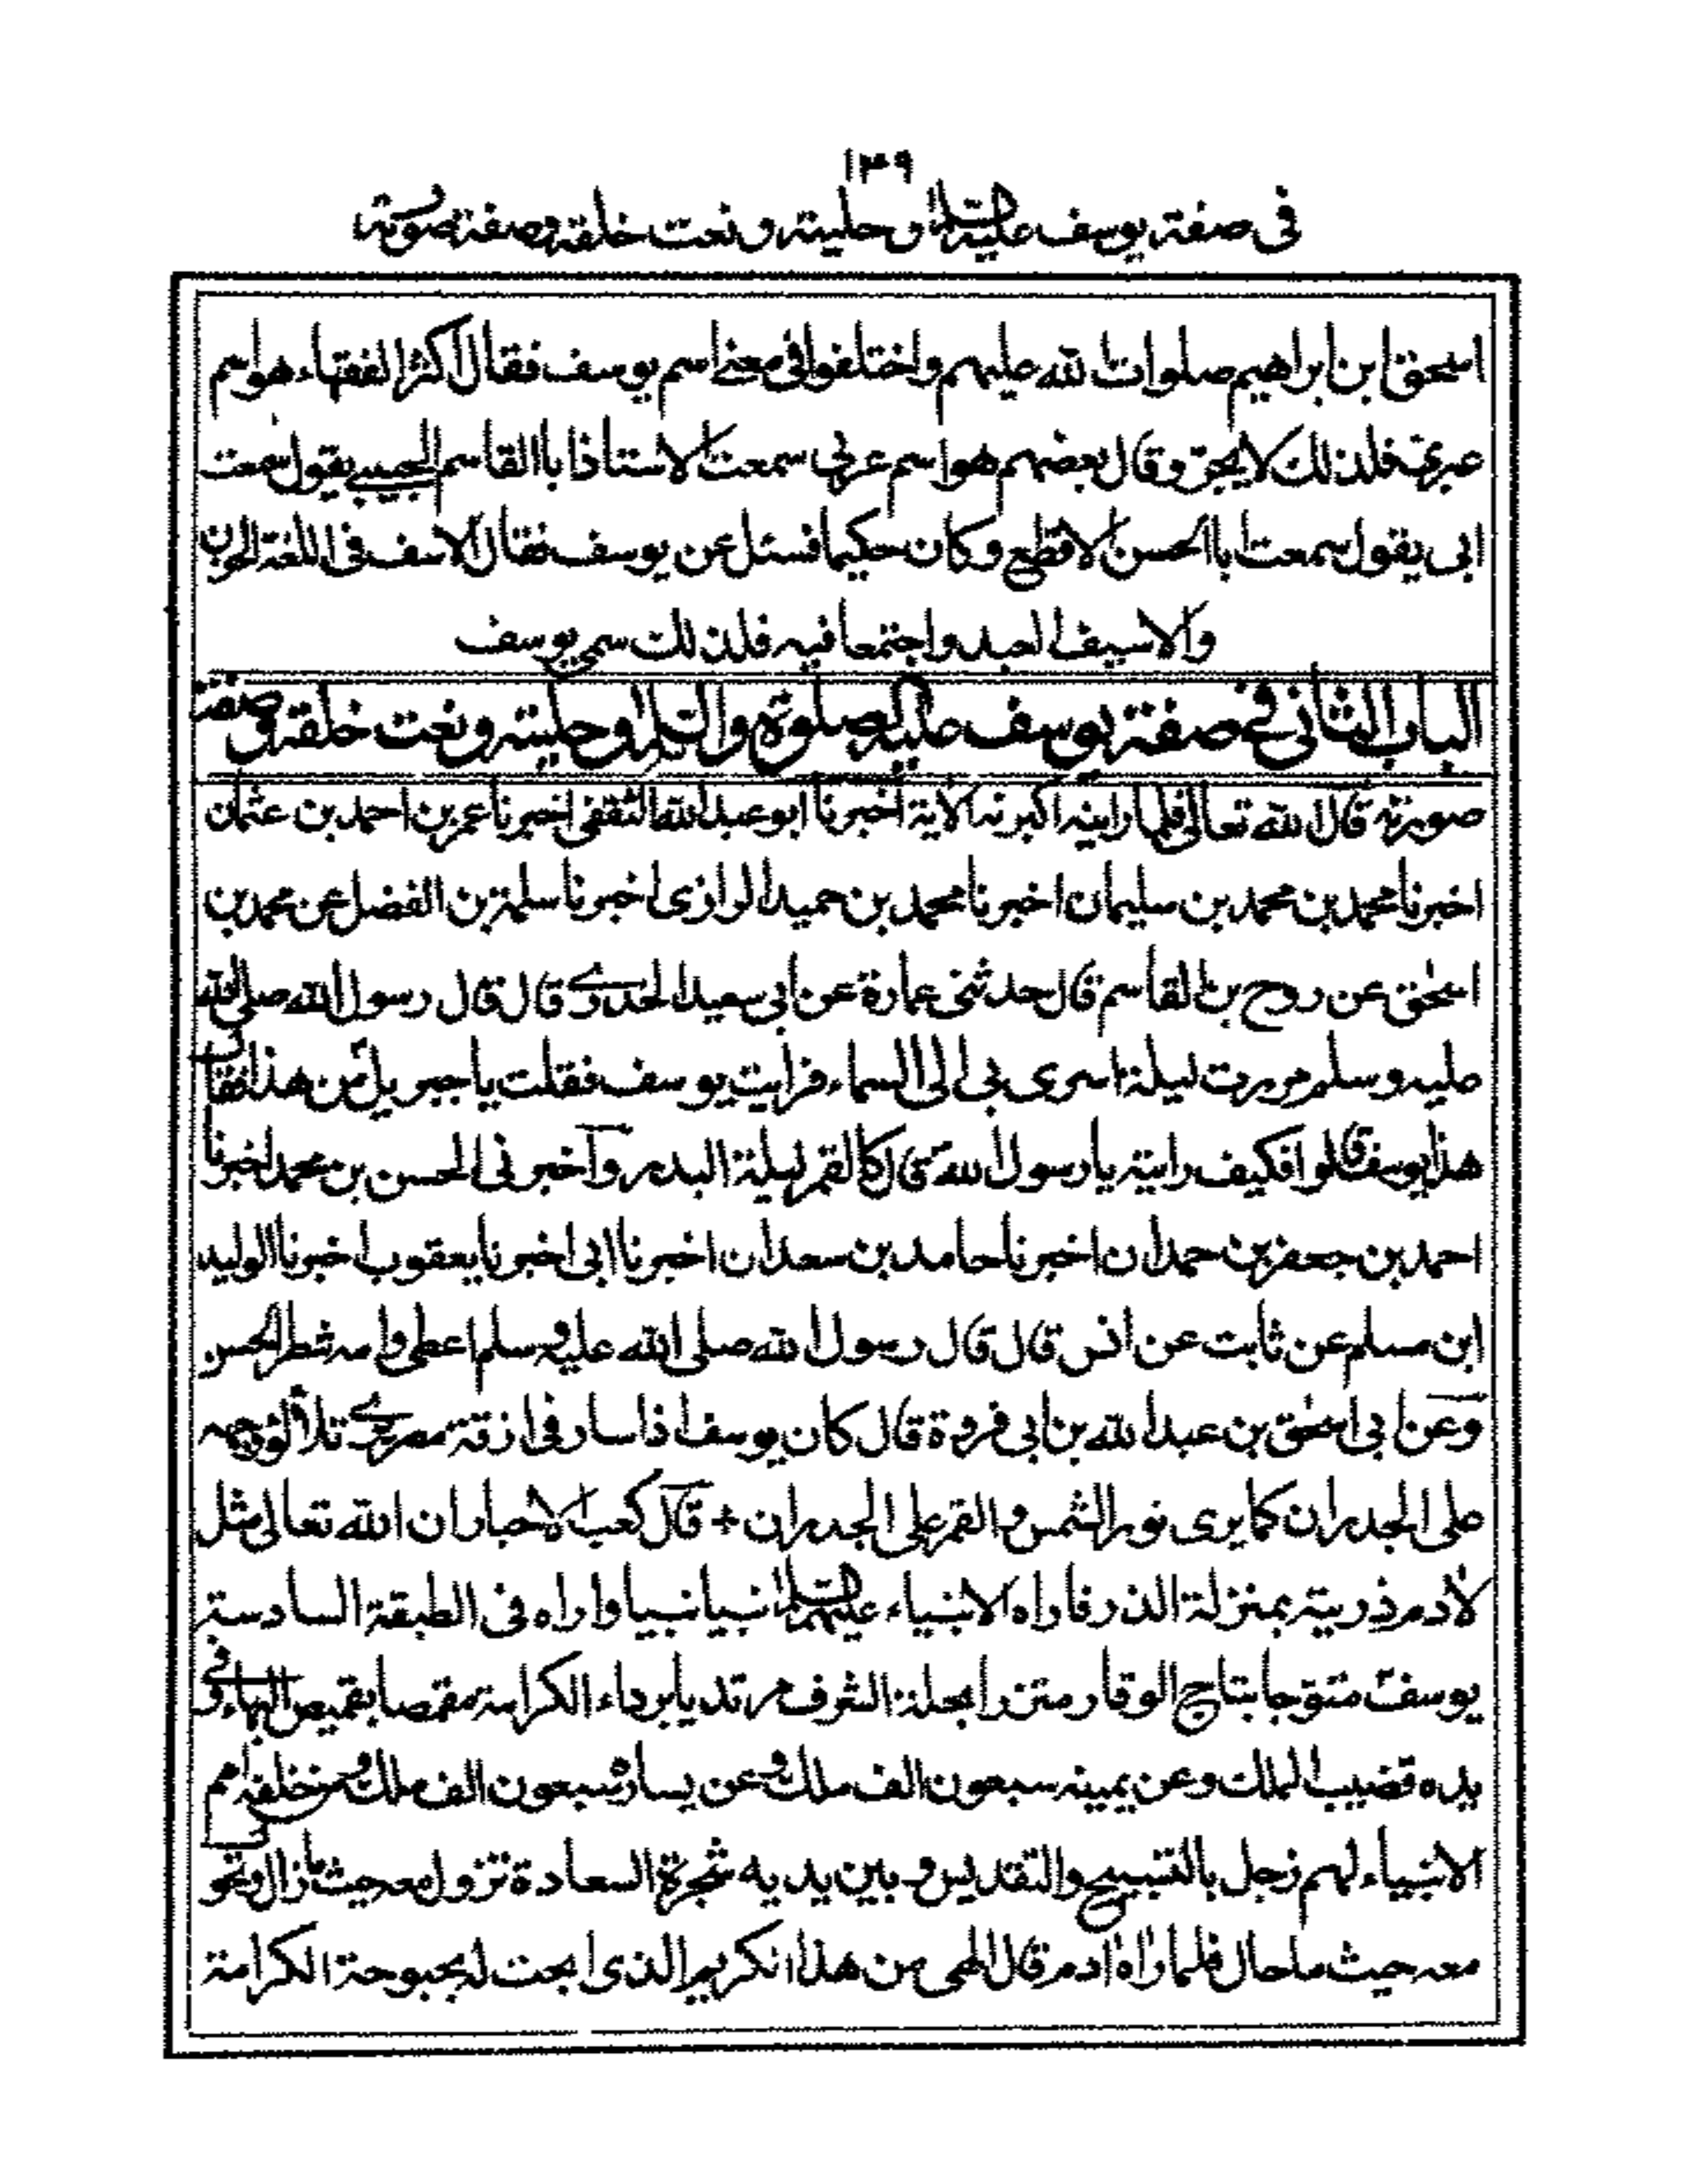 ١٣٩
في صفة يوسف عليه السلام وحليته ونعت خلقه وصفة صورته
اسحق ابن ابراهيم صلوات الله عليهم واختلفوا في معنى اسم يوسف فقال اكثر الفقهاء هو اسم
عبري فلذلك لا يجرّ وقال بعضهم هو اسم عربي سمعت الاستاذ ابا القاسم الحبيبي يقول سمعت
ابي يقول سمعت ابا الحسن الاقطع وكان حكيما فسئل عن يوسف فقال الاسف في اللغة الحزن
والاسيف العبد واجتمعا فيه فلذلك سمى يوسف
الباب الثاني في صفة يوسف عليه صلوته والسلام وحليته ونعت خلقه وصفة
صورته قال الله تعالى فلما راينه اكبرنه الاية اخبرنا ابو عبد الله الثقفي اخبرنا عمر بن احمد بن عثمان
اخبرنا محمد بن محمد بن سليمان اخبرنا محمد بن حميد الرازى اخبرنا سلمة بن الفضل عن محمد بن
اسحق عن روح بن القاسم قال حدثنى عمارة عن ابي سعيد الخدرى قال قال رسول الله صلى الله
عليه وسلم مررت ليلة اسرى بي الى السماء فرايت يوسف فقلت يا جبريل من هذا فقال
هذا يوسف قالوا فكيف رايته يا رسول الله قال كالقمر ليلة البدر وآخبرنى الحسن بن محمد اخبرنا
احمد بن جعفر بن حمدان اخبرنا حامد بن سعدان اخبرنا ابى اخبرنا يعقوب اخبرنا الوليد
ابن مسلم عن ثابت عن انس قال قال رسول الله صلى الله عليه وسلم اعطى وامه شطر الحسن
وعن ابى اسحق بن عبد الله بن ابى فروة قال كان يوسف اذا سار في ازقة مصر يرى تلألؤ وجهه
على الجدران كما يرى نور الشمس والقمر على الجدران + قال كعب الاحبار ان الله تعالى مثل
لآدم ذريته بمنزلة الذر فاراه الانبياء عليهم السلام نبيا نبيا واراه في الطبقة السادسة
يوسف متوجا بتاج الوقار متزرا بحلة الشرف مرتديا برداء الكرامة مقمصا بقميص البهاء وفى
يده قضيب الملك وعن يمينه سبعون الف ملك وعن يساره سبعون الف ملك ومن خلفه امم
الانبياء لهم زجل بالتسبيح والتقديس وبين يديه شجرة السعادة تزول معه حيث مازال وتحو
معه حيث ماحال فلما راٰه اٰدم قال الهى من هذا الكريم الذى ابحت له بحبوحة الكرامة